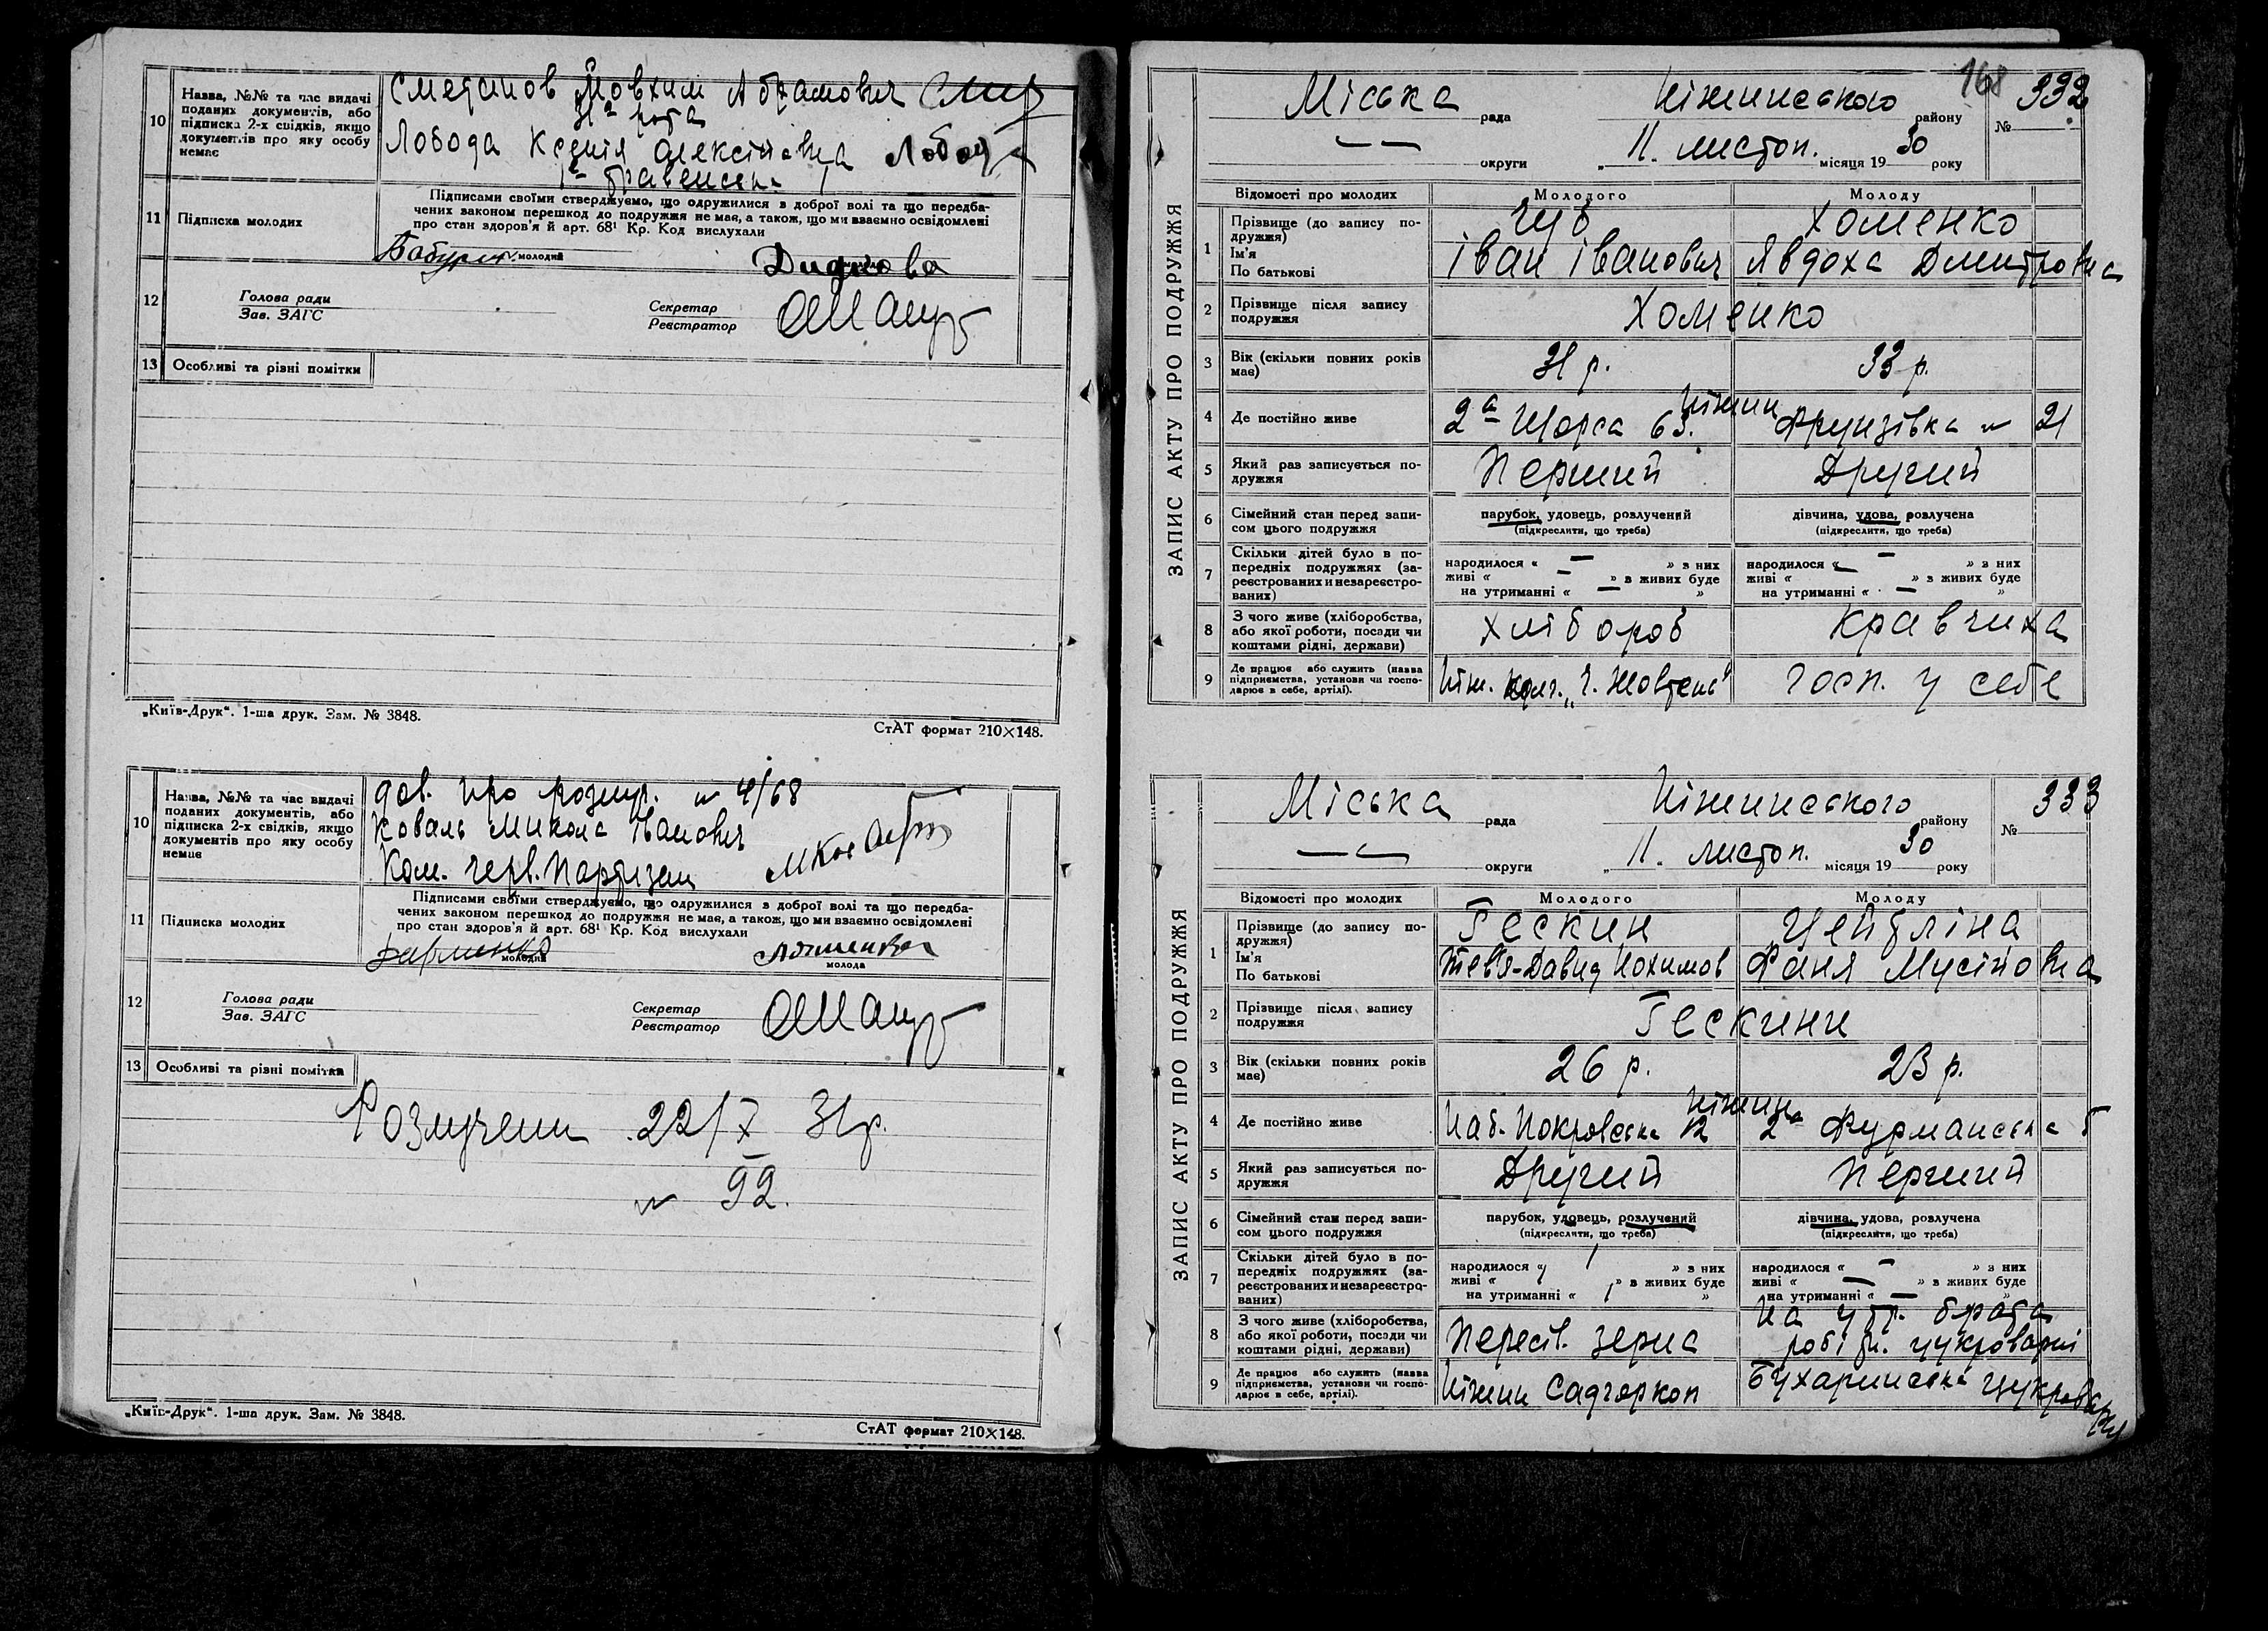 10
Назва, №№ та час видачі
поданих документів, або
підписка 2-х свідків, якщо
документів про яку особу
немає
Сметанов Йовхим Абрамович
31ᵃ рота
Лобода Ксенія Олексіївна Лобода
11
Підписка молодих
Підписами своїми стверджуємо, що одружилися в доброї волі та що передба-
чених законом перешкод до подружжя не має, а також, що ми взаємно освідомлені
про стан здоров'я й арт. 68¹ Кр. Код вислухали
молодий
Дидкова
12
Голова ради
Зав. ЗАГС
Секретар
Реєстратор
13 Особливі та різні помітки
„Київ-Друк“. 1-ша друк. Зам. № 3848.
СтАТ формат 210×148.
10
Назва, №№ та час видачі
поданих документів, або
підписка 2-х свідків, якщо
документів про яку особу
немає
дов. про розлуч. № 4/68
Коваль Микола Іванович
Ком. черв. Партизан
11
Підписка молодих
Підписами своїми стверджуємо, що одружилися з доброї волі та що передба-
чених законом перешкод до подружжя не має, а також, що ми взаємно освідомлені
про стан здоров'я й арт. 68¹ Кр. Код вислухали
молодий
молода
12
Голова ради
Зав. ЗАГС
Секретар
Реєстратор
13 Особливі та різні помітки
Розлучени 22/X 31р.
№ 92.
„Київ-Друк“. 1-ша друк. Зам. № 3848.
СтАТ формат 210×148.
168
ЗАПИС АКТУ ПРО ПОДРУЖЖЯ
Міська рада Ніжинського району № 332
— — округи „11. листоп. місяця 1930 року
Відомості про молодих Молодого Молоду
1
Прізвище (до запису по-
дружжя)
Ім'я
По батькові
Чуб Хоменко
Іван Іванович Явдоха Дмитровна
2
Прізвище після запису
подружжя
Хоменко
3
Вік (скільки повних років
має)
31 р. 33 р.
4 Де постійно живе
Ніжин
2ᵃ Щорса 63. Фрунзівка № 21
5
Який раз записується по-
дружжя
Перший Другий
6
Сімейний стан перед запи-
сом цього подружжя
парубок, удовець, розлучений дівчина, удова, розлучена
(підкреслити, що треба) (підкреслити, що треба)
7
Скільки дітей було в по-
передніх подружжях (за-
реєстрованих и незареєстро-
ваних)
народилося « — » з них народилося « — » з них
живі « — » в живих буде живі « » в живих буде
на утриманні « — » на утриманні « — »
8
З чого живе (хліборобства,
або якої роботи, посади чи
коштами рідні, держави)
хлібороб кравчиха
9
Де працює або служить (назва
підприємства, установи чи госпо-
дарює в себе, артілі).
Ніж. колг. „Ч. Жовтень“ госп. у себе
ЗАПИС АКТУ ПРО ПОДРУЖЖЯ
Міська рада Ніжинського району № 333
— — округи „11. листоп. місяця 1930 року
Відомості про молодих Молодого Молоду
1
Прізвище (до запису по-
дружжя)
Ім'я
По батькові
Гескин Цейтліна
Тевя-Давид Иохимов Фаня Мусіївна
2
Прізвище після запису
подружжя
Гескини
3
Вік (скільки повних років
має)
26 р. 23 р.
4 Де постійно живе
Ніжин
Наб. Покровська 12 2ᵃ Фурманська 5
5
Який раз записується по-
дружжя
Другий Перший
6
Сімейний стан перед запи-
сом цього подружжя
парубок, удовець, розлучений дівчина, удова, розлучена
(підкреслити, що треба) (підкреслити, що треба)
7
Скільки дітей було в по-
передніх подружжях (за-
реєстрованих и незареєстро-
ваних)
народилося « » з них народилося « — » з них
живі « » в живих буде живі « — » в живих буде
на утриманні « » на утриманні « — »
8
З чого живе (хліборобства,
або якої роботи, посади чи
коштами рідні, держави)
На утр. брата
Пересів. зерна робітн. цукроварні
9
Де працює або служить (назва
підприємства, установи чи госпо-
дарює в себе, артілі).
Ніжин Садгоркоп Бухаринська цукроварня